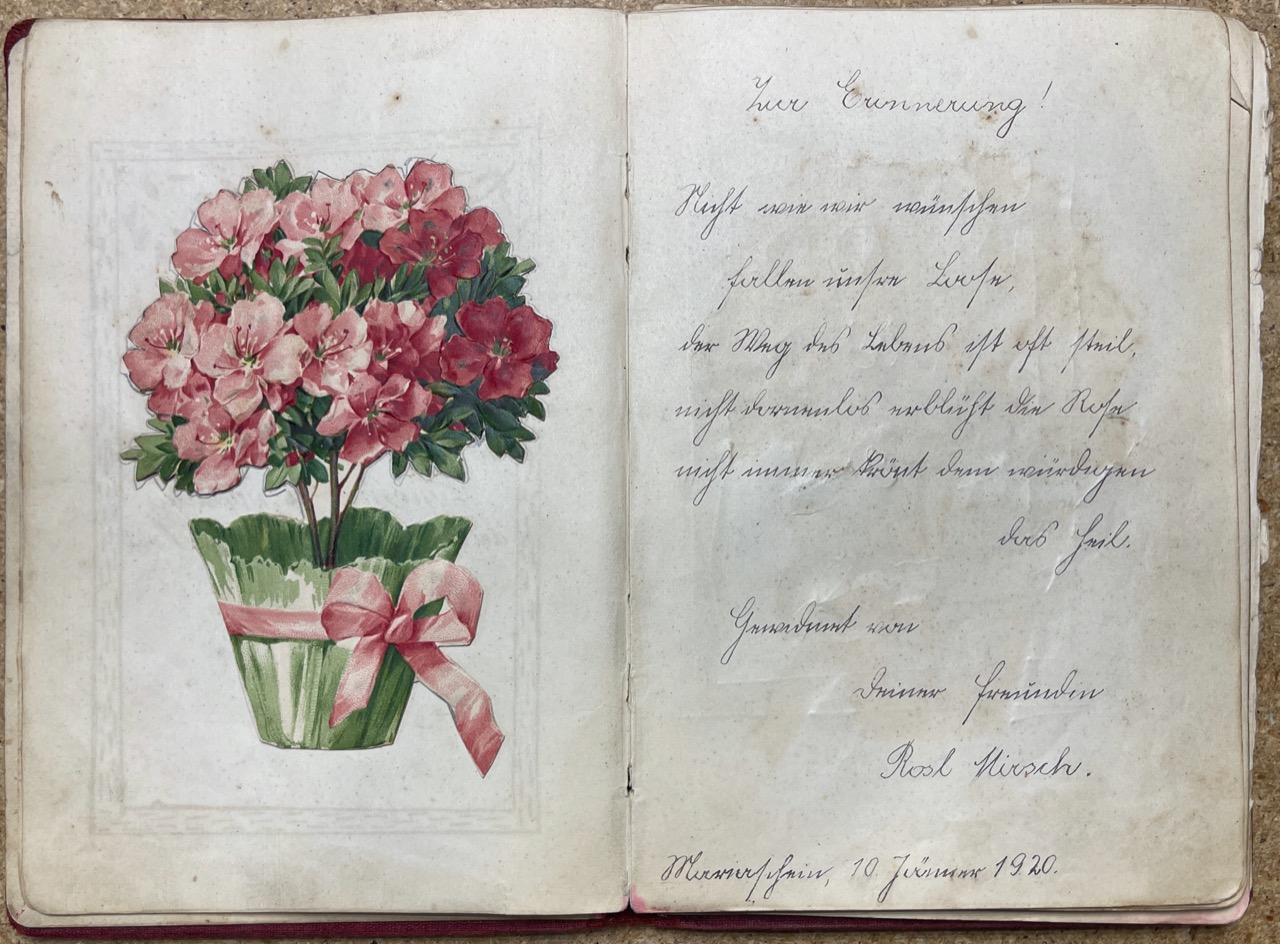 Zur Erinnerung!
Nicht wie wir wünschen
fallen unsre Loose,
der Weg des Lebens ist oft steil,
nicht dornenlos erblüht die Rose
nicht immer krönt dem würdigen
das Heil.
Gewidmet von
Deiner Freundin
Rosl Mirsch.
Mariaschein, 10 Jänner 1920.